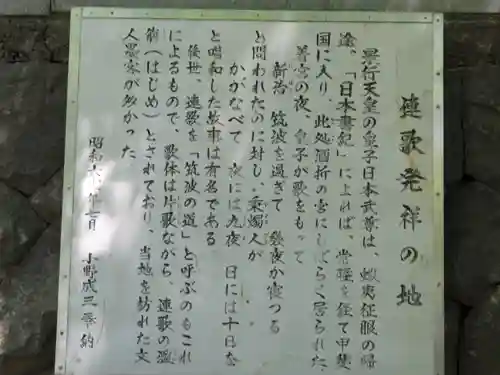 連歌発祥の地
景行天皇の皇子日本武尊は、蝦夷征服の帰
途、「日本書紀」によれば 常陸を経て甲斐
国に入り、此処酒折の宮にしばらく居られた、
着宮の夜、皇子が歌をもって
新治 筑波を過ぎて 幾夜か寝つる
と問われたのに対し、秉燭人が
かがなべて 夜には九夜 日には十日を
と唱和した故事は有名である
後世、連歌を「筑波の道」と呼ぶのもこれ
によるもので、歌体は片歌ながら、連歌の濫
觴(はじめ)とされており、当地を訪れた文
人墨客が多かった
昭和六 年七月 小野成三 奉納